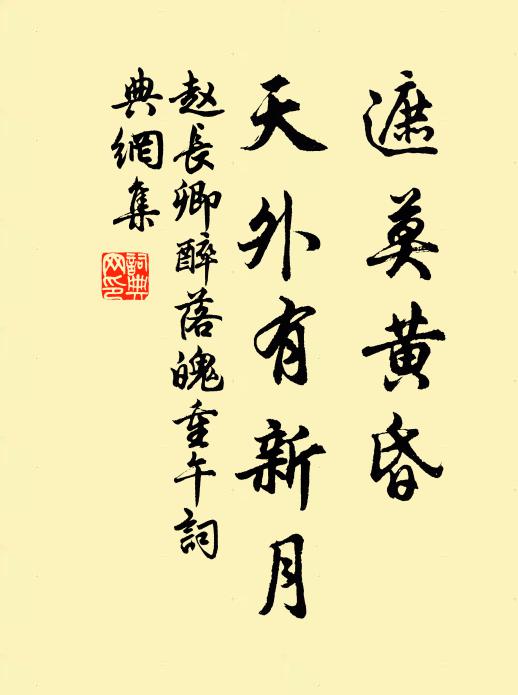 遮莫黄昏
天外有新月
赵長卿醉落魄重午詞
典網集
詞典网印